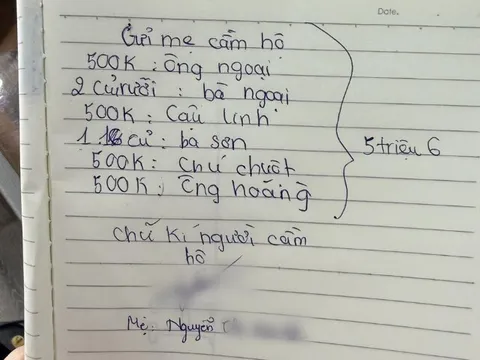 Date.
Gửi mẹ cầm hộ
500K : Ông ngoại
2 củ rưỡi : bà ngoại
500K : Cậu Linh
1.1 củ : bà Sơn
500K : Chú chuột
500K : Ông hoàng
5 triệu 6
chữ kí người cầm
hộ
Mẹ: Nguyễn